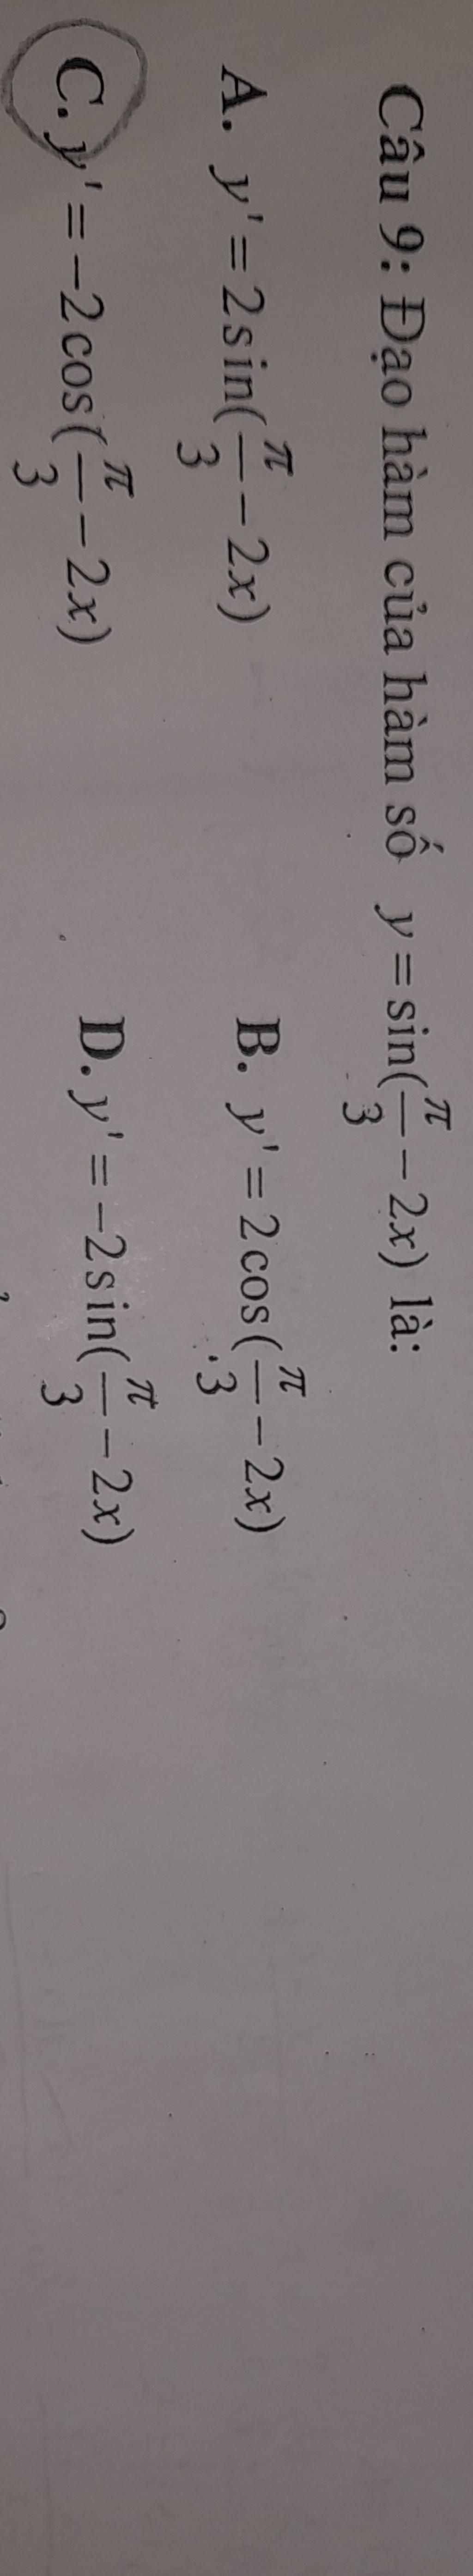 Câu 9: Đạo hàm của hàm số y = sin(π/3 − 2x) là:
A. y' = 2sin(π/3 − 2x) B. y' = 2cos(π/3 − 2x)
C. y' = −2cos(π/3 − 2x) D. y' = −2sin(π/3 − 2x)